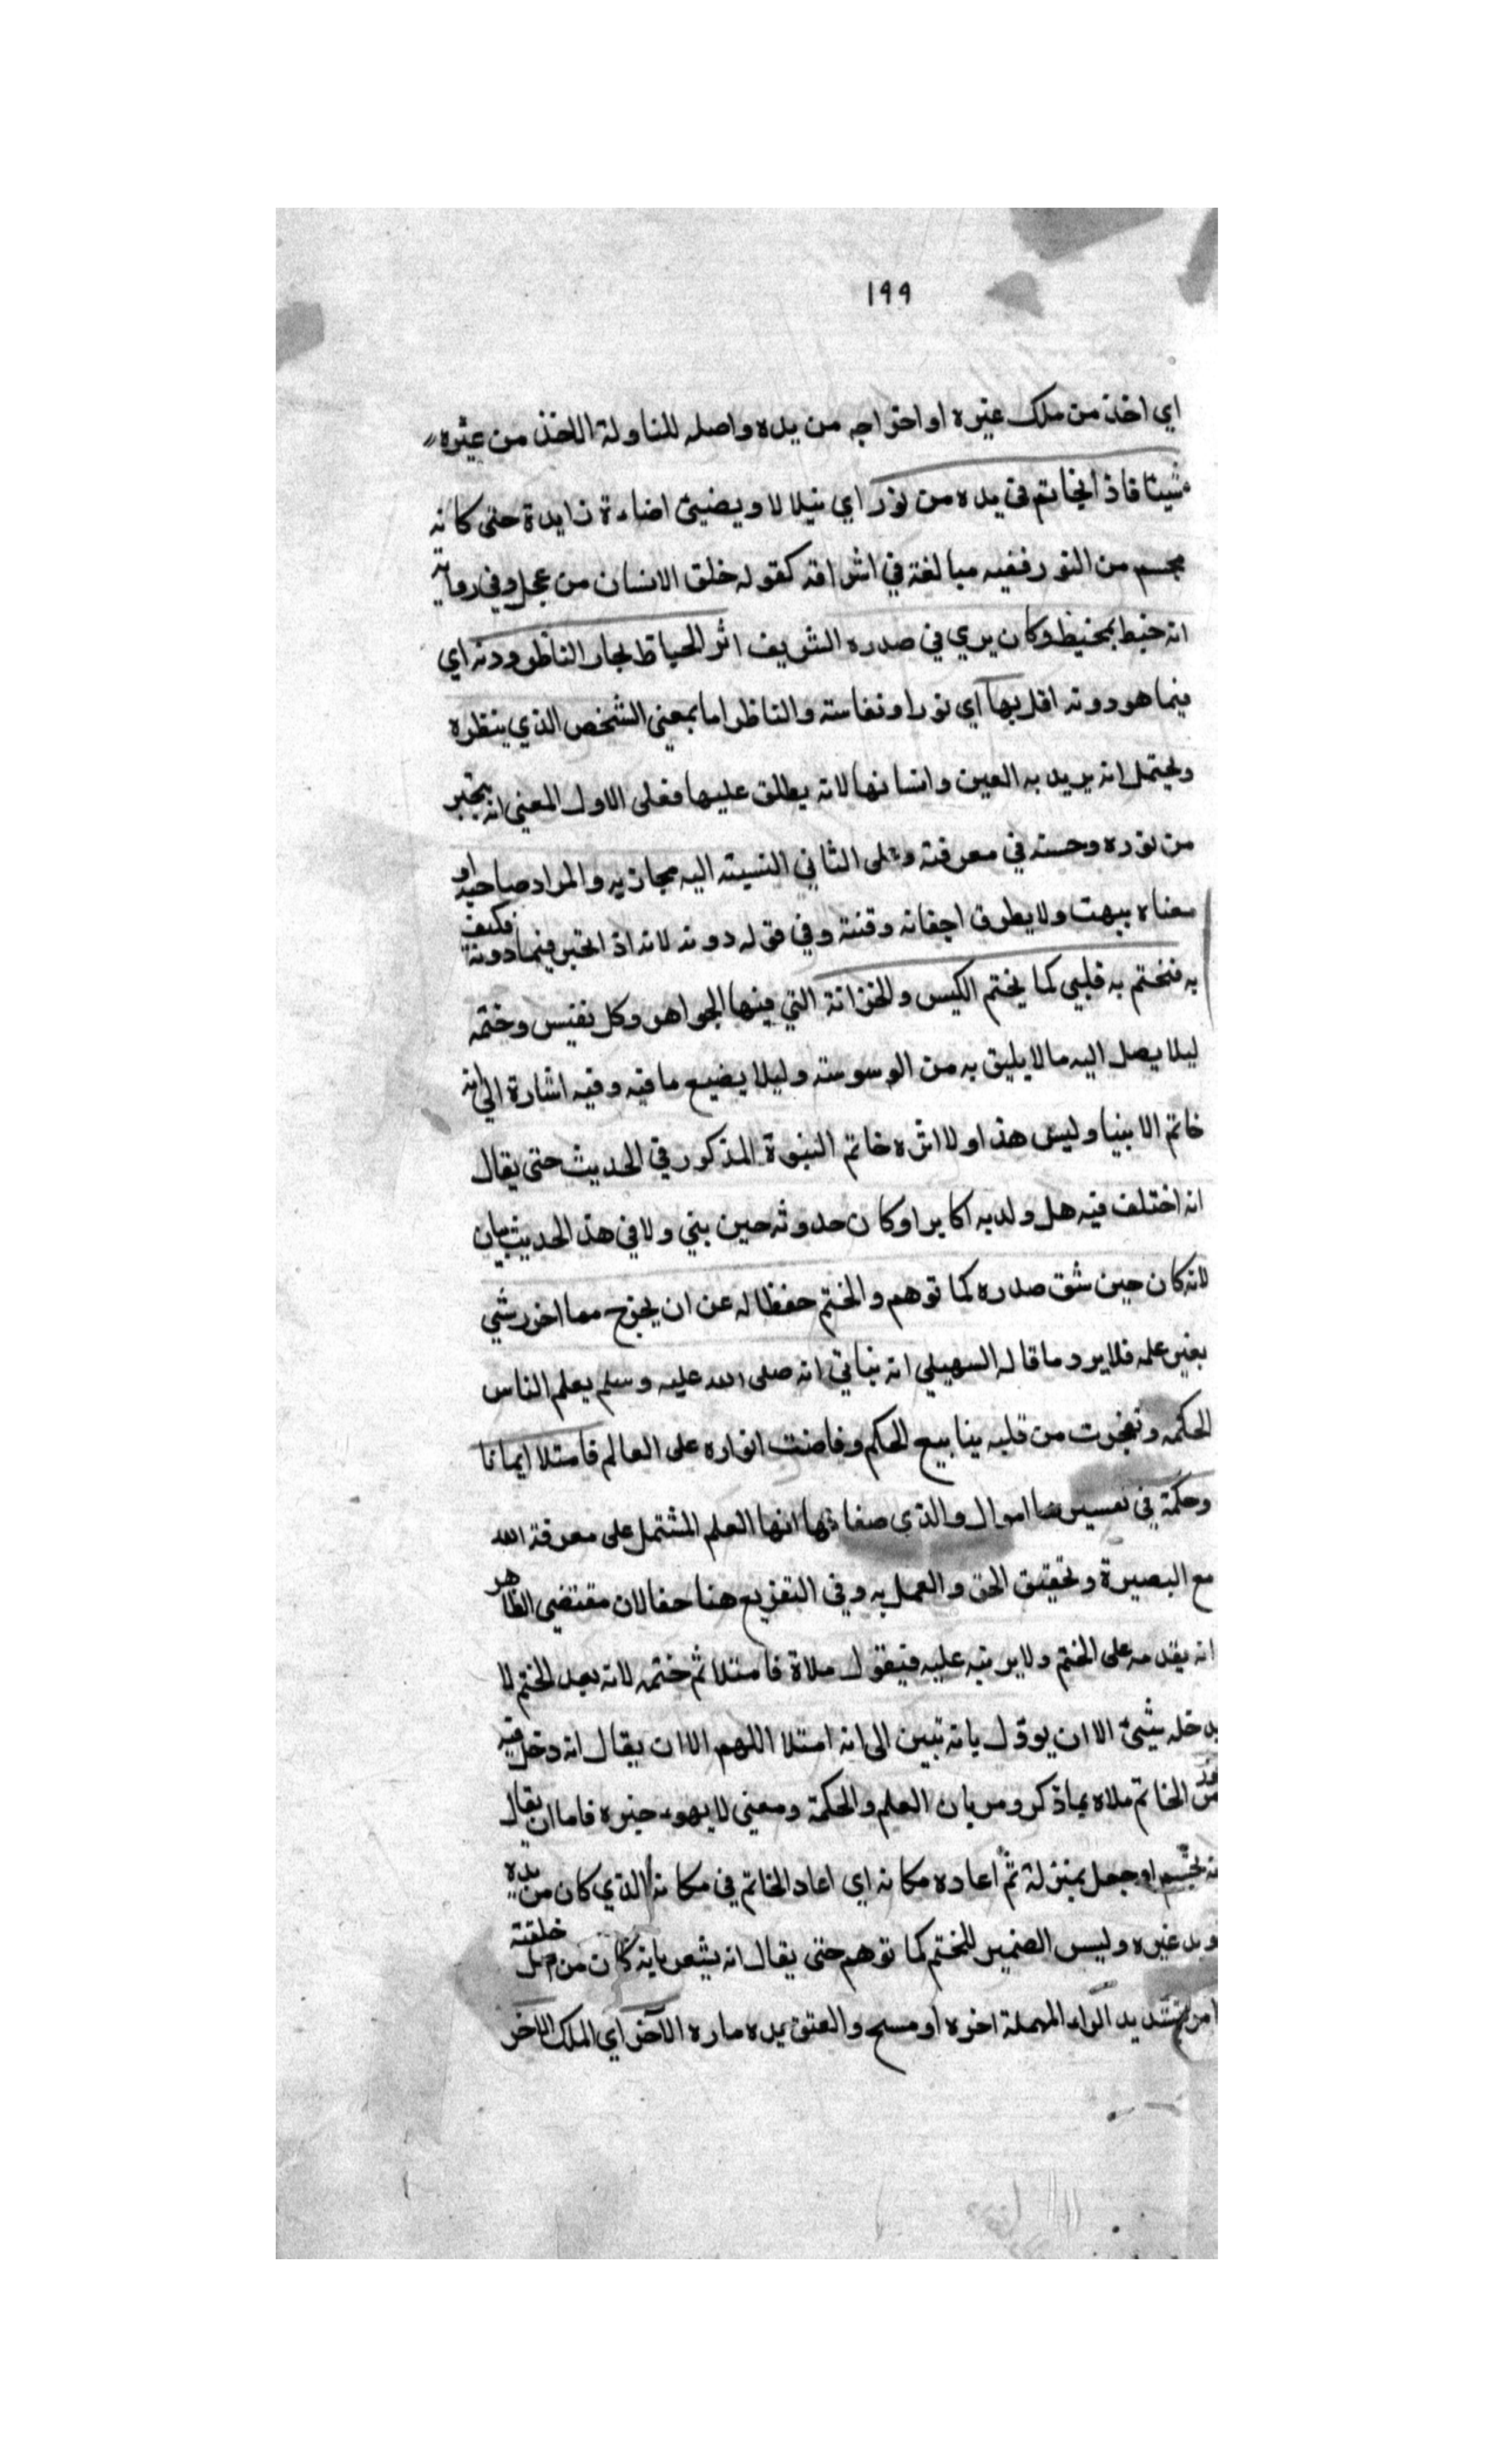 ١٩٩
اي اخذ من ملك غيره او اخراجه من يده واصله للمناولة الاخذ من غيره
شيئا فاذ الخاتم في يده من نور اي يتلالا ويضيئ اضاءة زايدة حتى كانه
مجسم من النور ففيه مبالغة في اشراقه كقوله خلق الانسان من عجل وفي رواية
انه خيط بمخيط وكان يري في صدره الشريف اثر الخياط يحار الناظر دونه اي
فيما هو دونه اقل بها اي نورا ونفاسته والناظر اما بمعني الشخص الذي ينظره
ويحتمل انه يريد به العين وانسانها لانه يطلق عليها فعلى الاول المعني انه يتحير
من نوره وحسنه في معرفته وعلى الثاني النسبته اليه مجازيه والمراد صاحبه او
معناه يبهت ولا يطرق اجفانه وقتة وفي قوله دونه لانه اذ اتحير فيما دونه فكيف
به فختم به قلبي كما يختم الكيس والخزانة التي فيها الجواهر وكل نفيس وختمه
ليلا يصل اليه مالا يليق به من الوسوسته وليلا يضيع ما فيه وفيه اشارة الي انه
خاتم الانبيا وليس هذا ولا اثره خاتم النبوة المذكور في الحديث حتى يقال
انه اختلف فيه هل ولد به اكابر او كان حدوثه حين بني ولا في هذ الحديث بيان
لانه كان حين شق صدره كما توهم والختم حفظا له عن ان يخرج مما اخر شي
بغير علمه فلا يرد ما قاله السهيلي انه ينافي انه صلى الله عليه وسلم يعلم الناس
الحكمه وتفجرت من قلبه ينابيع الحكم وفاضت انواره على العالم فامتلا ايمانا
وحكمة في تفسيرها اموال والذي صفا انها العلم المشتمل على معرفة الله
مع البصيرة وتحقيق الحق والعمل به وفي التفريع هنا حفا لان مقتضي الظاهر
انه يقدمه على الختم ولا يرتبه عليه فيقول ملاه فامتلا ثم ختمه لانه بعد الختم لا
يدخله شيئ الا ان يوول بانه تبين الى انه امتلا اللهم الا ان يقال انه دخل فيه
من الخاتم ملاه بماذكر ومر بان العلم والحكمة ومعني لا يهوء خبره فاما ان يقال
او جعل بمنزلة ثم اعاده مكانه اي اعاد الخاتم في مكانه الذي كان من يده
ويد غيره وليس الضمير للختم كما توهم حتى يقال انه يشعر بانه كان من اصل خلقته
امر بتشديد الراء المهملة اخره او مسح والعتق يده ماره الآخر اي الملك الاخر